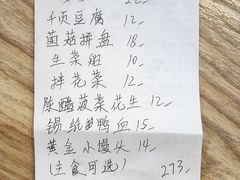 千页豆腐 12-
菌菇拼盘 18-
生菜组 10-
拌花菜 12-
陈醋菠菜花生 12-
锡纸鸭血 15-
黄金小馒头 14-
(主食可选) 273-